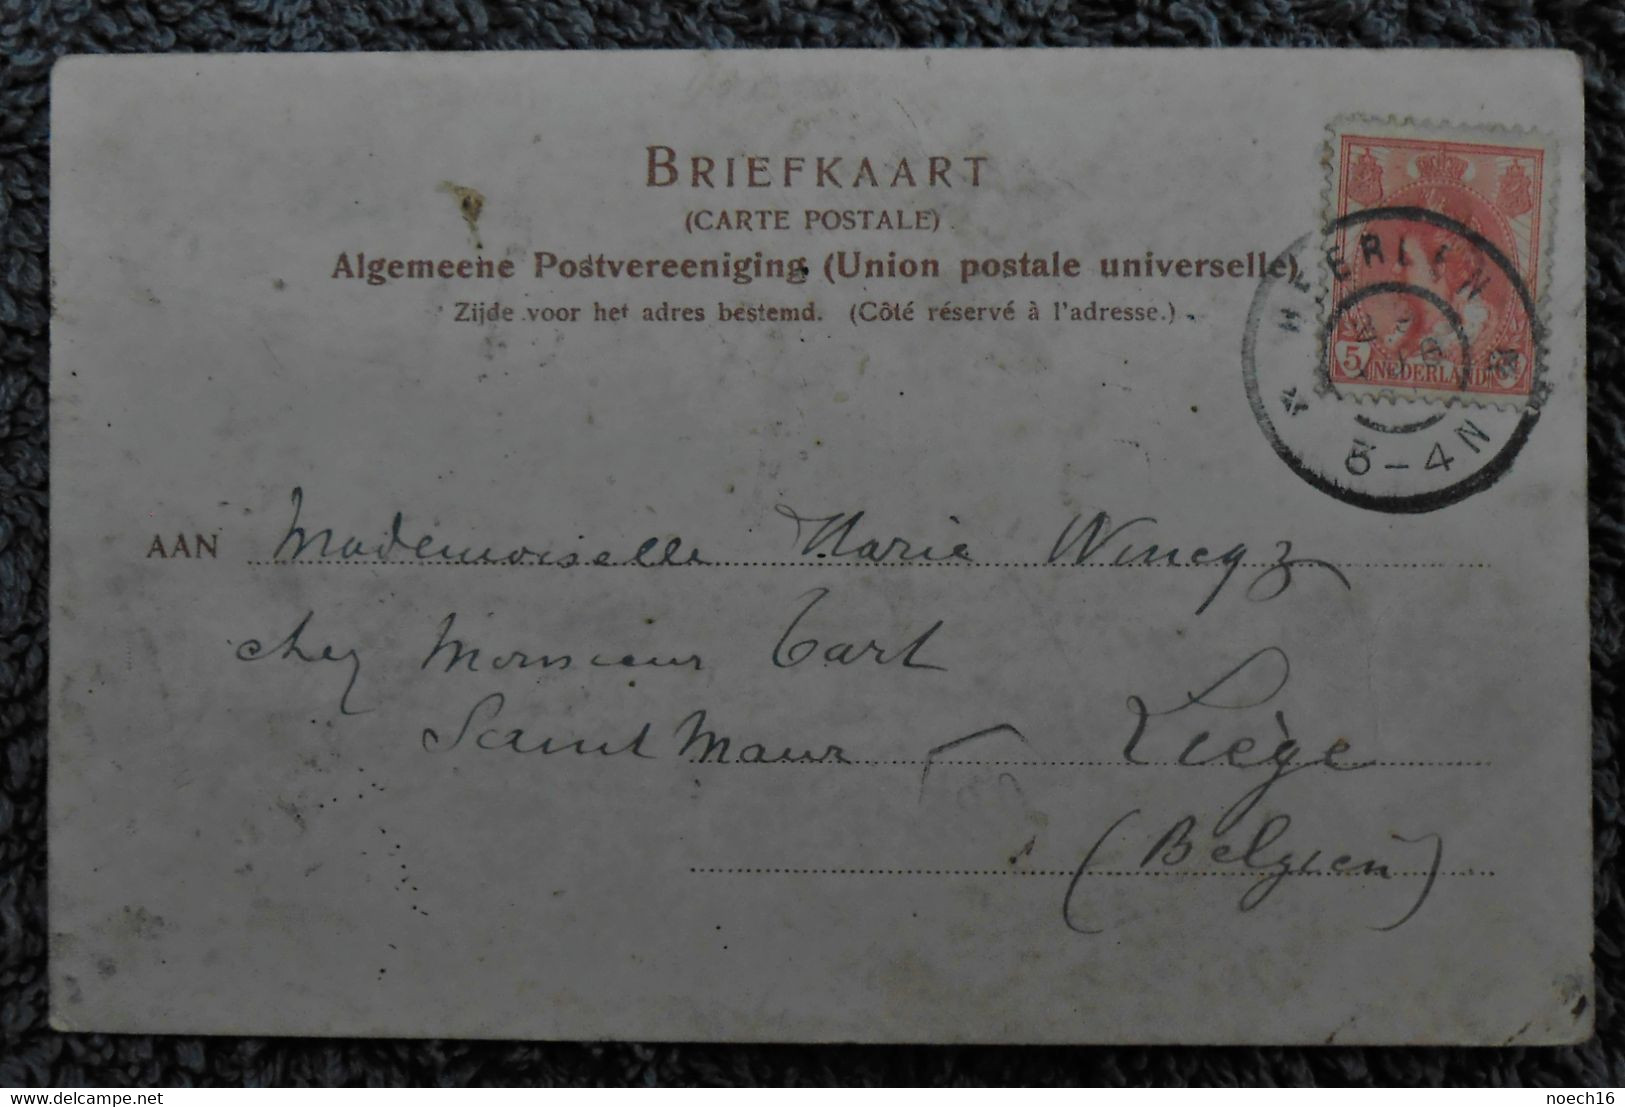 BRIEFKAART
(CARTE POSTALE)
Algemeene Postvereeniging (Union postale universelle)
Zijde voor het adres bestemd. (Côté réservé à l'adresse.)
HEERLEN
5 NEDERLAND
5-4N
AAN Mademoiselle Marie
chez Monsieur Tart
Saint Maur Liège
(Belgien)
delcampe.net
noech16